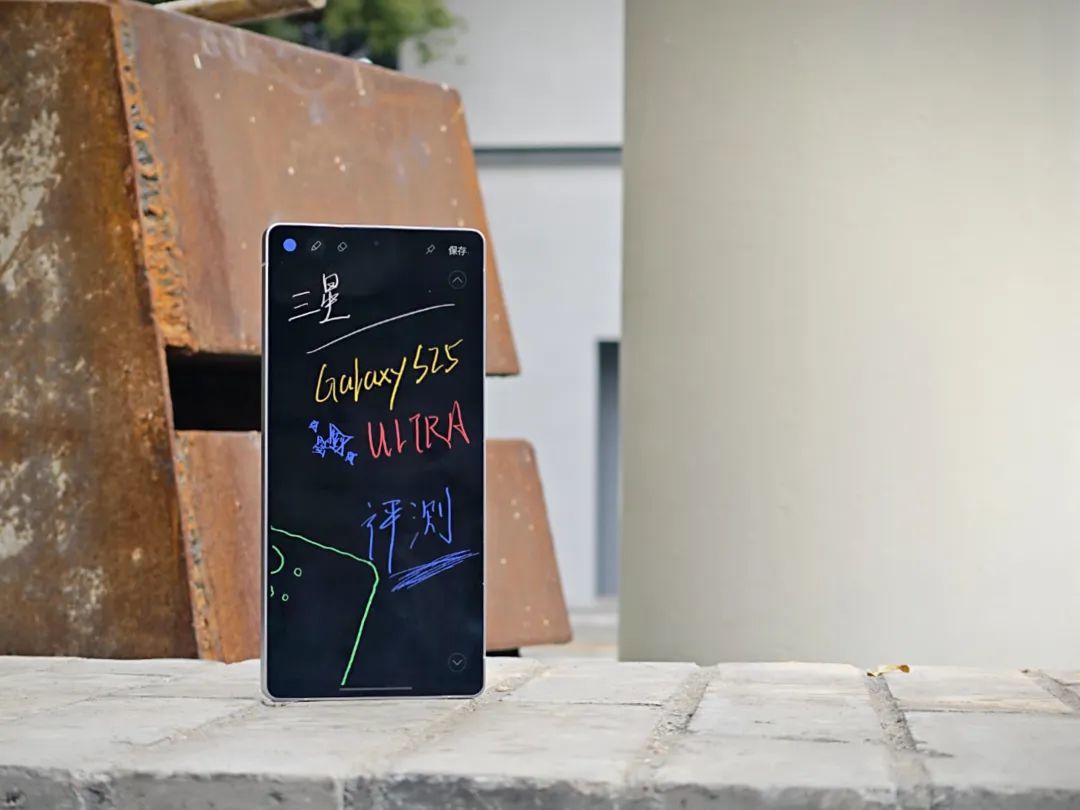 保存
三星
Galaxy S25
ULTRA
评测